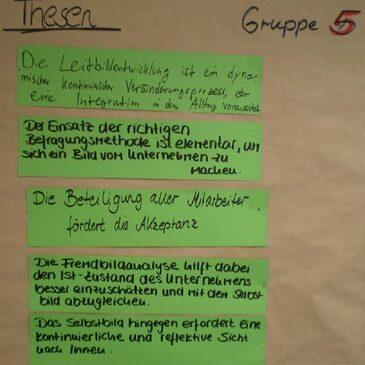 Thesen
Gruppe 5
Die Leitbildentwicklung ist ein dyna-
mischer kontinuierlicher Veränderungsprozess, der
eine Integration in den Alltag voraussetzt
Der Einsatz der richtigen
Befragungsmethode ist elementar, um
sich ein Bild vom Unternehmen zu
machen.
Die Beteiligung aller Mitarbeiter
fördert die Akzeptanz
Die Fremdbildanalyse hilft dabei
den Ist-Zustand des Unternehmens
besser einzuschätzen und mit dem Selbst
bild abzugleichen.
Das Selbstbild hingegen erfordert eine
kontinuierliche und reflektive Sicht
nach Innen.